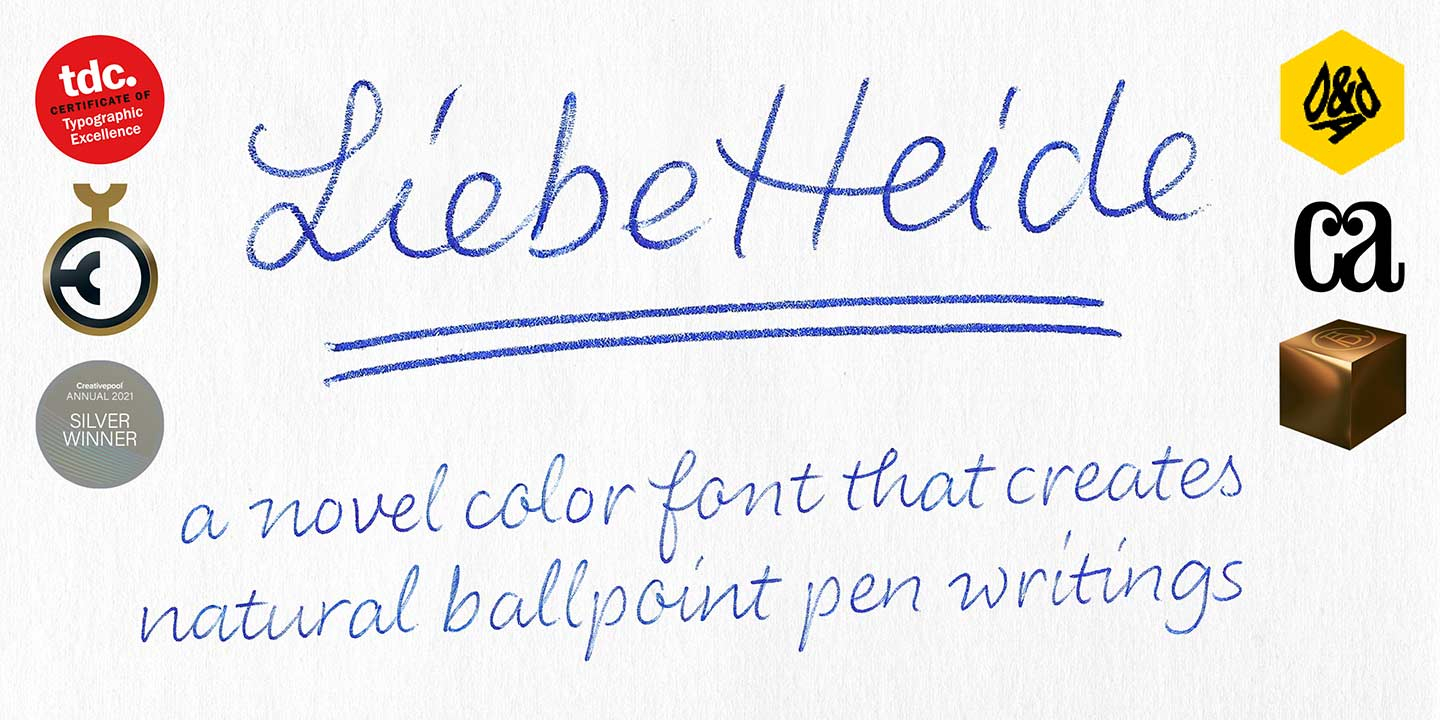 tdc.
CERTIFICATE OF
Typographic
Excellence
Creativepool
ANNUAL 2021
SILVER
WINNER
LiebeHeide
a novel color font that creates
natural ballpoint pen writings
D&AD
ca